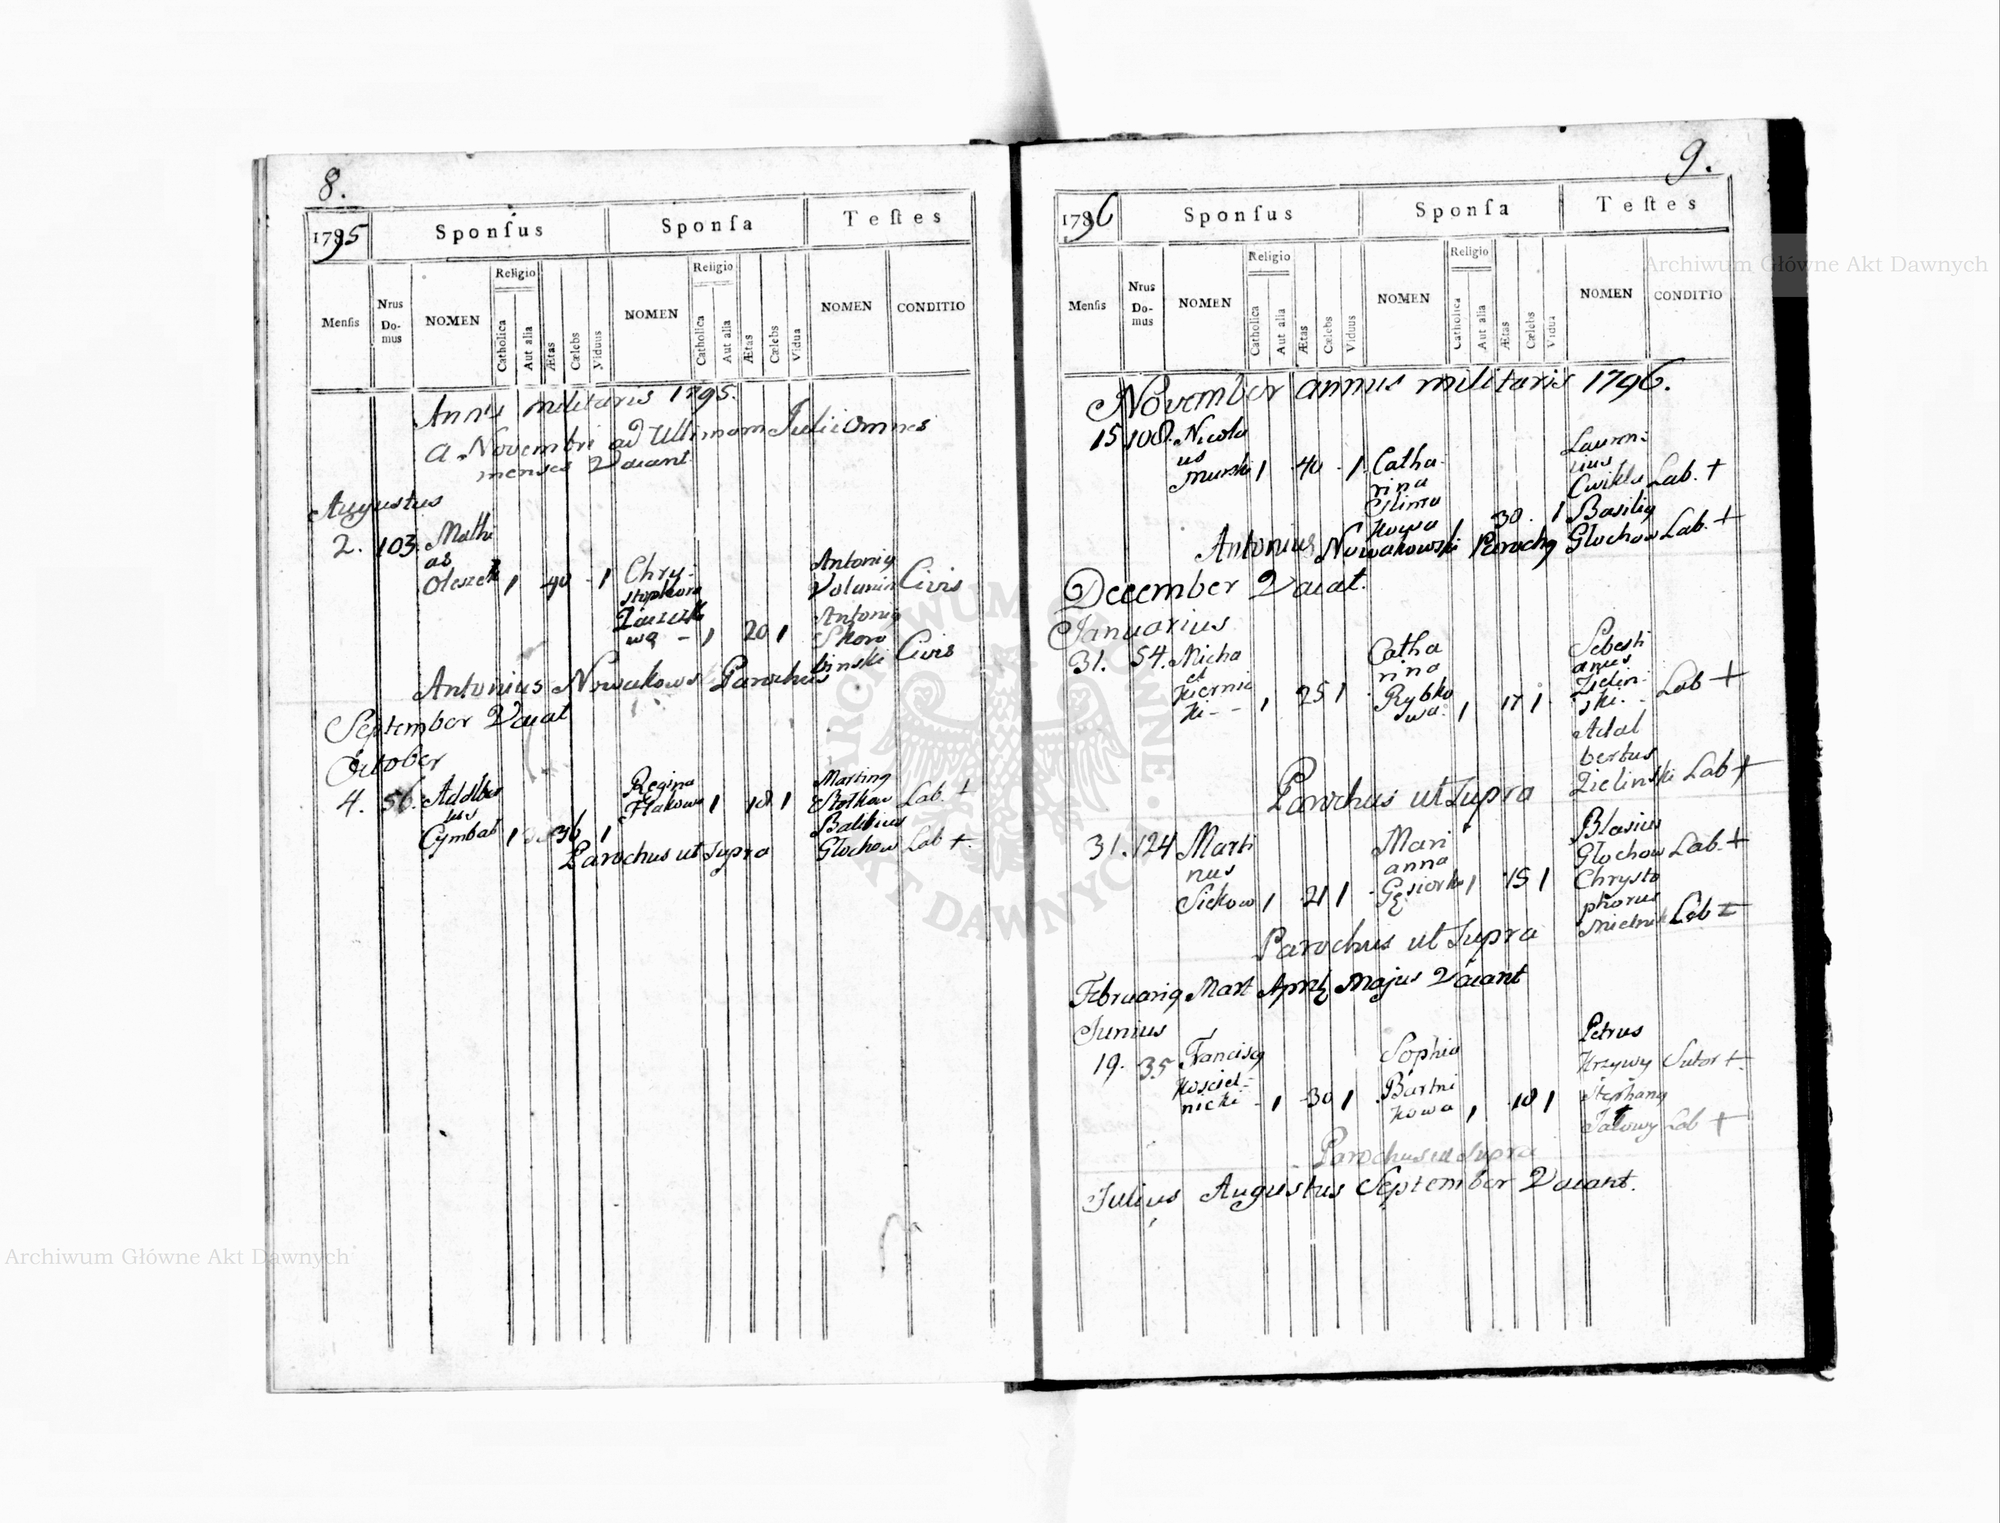 8.
1795
Sponsus
Sponsa
Testes
Mensis
Nrus Do-mus
NOMEN
Religio
Catholica
Aut alia
Ætas
Cælebs
Viduus
NOMEN
Religio
Catholica
Aut alia
Ætas
Cælebs
Vidua
NOMEN
CONDITIO
militaris 1795.
a Novembri ad Ultimam Julii omnes
menses Vacant
Augustus
2. 103. Mathi
as
Oleszek 1 40 1
Chry-
wa - 1 20 1
Antoni9
Civis
Antoni9
Skoro
binski Civis
Antonius Nowakows Parochus
September Vacat
October
4. 56. Adalber
tus
Cymbal 1 36 1
Regina
Flakowa 1 18 1
Martin9
Lab. +
Głochow Lab +.
Parochus ut Supra
9.
1796
Sponsus
Sponsa
Testes
Mensis
Nrus Do-mus
NOMEN
Religio
Catholica
Aut alia
Ætas
Cælebs
Viduus
NOMEN
Religio
Catholica
Aut alia
Ætas
Cælebs
Vidua
NOMEN
CONDITIO
November annus militaris 1796.
15 108. Nicola
us
Murski 1 40 1
Catha-
rina
Glima
kowa 1 30. 1
Cwikla Lab. +
Basili9
Głochow Lab. +
Antonius Nowakowski Paroch9
December Vacat.
Januarius
31. 54. Micha
el
Kierni
ki - - 1 25 1
Catha
rina
Rybko
wa. 1 17 1
Sebesti
anus
Zielin-
ski. - Lab +
Adal
bertus
Zielinski Lab +
Parochus ut Supra
31. 124 Marti
nus
Sickow 1 21 1
Mari
anna
Gęsiorka 1 15 1
Blasius
Głochow Lab. +
Chrysto
phorus
Mielnik Lab +
Parochus ut Supra
Februari9 Mart Aprili Majus Vacant
Junius
19. 35 Francisc9
Kosciel-
nicki - 1 30 1
Sophia
Bartni
kowa 1 18 1
Petrus
Krzywy Sutor +.
Stephan9
Jałowy Lab +
Parochus ut Supra
Julius Augustus September Vacant.
Archiwum Główne Akt Dawnych
Archiwum Główne Akt Dawnych
ARCHIWUM GŁÓWNE AKT DAWNYCH